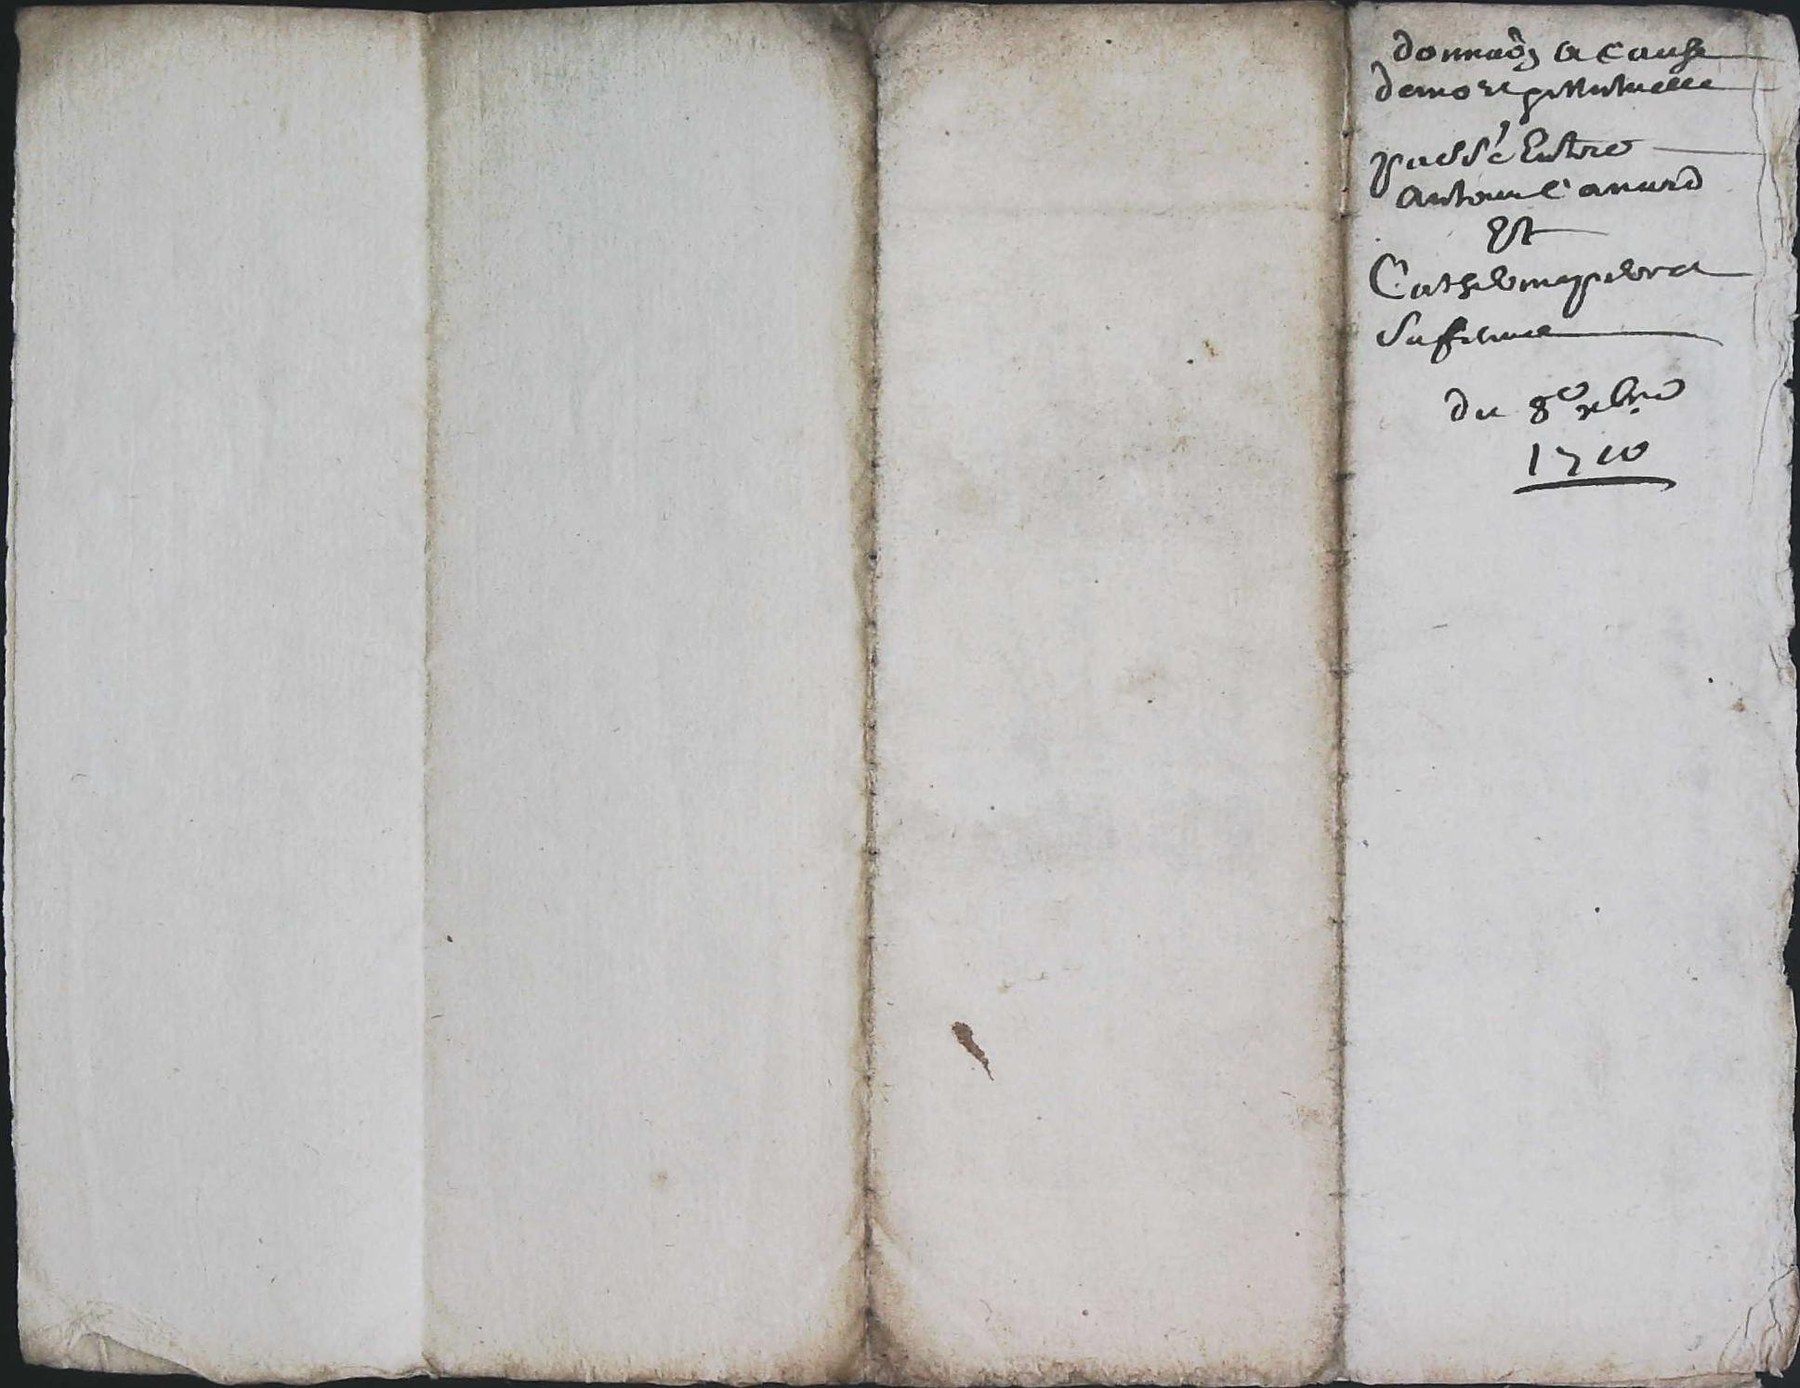 donnaôn a cause
de mort et mutuelle
passé Entre
Antoine Canard
Et
Catherine pierre
Sa femme
du 8e xbre
1710